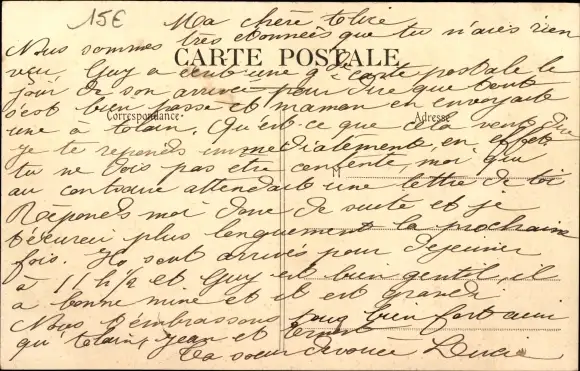 15€
Ma chère Alice
Nous sommes très étonnées que tu n'aies rien
CARTE POSTALE
vçu. Guy a écrit une gde carte postale le
jour de son arrivée pour dire que tout
s'est bien passé et maman en envoyait
Correspondance
Adresse
une à Alain. Qu'est-ce que cela veut dire
je te réponds immédiatement, en effet
tu ne dois pas être contente, moi qui
M
au contraire attendait une lettre de toi
Réponds moi donc de suite et je
t'écurei plus longuement la prochaine
fois. Ils sont arrivés pour déjeuner
à 11h1/2 et Guy est bien gentil, il
a bonne mine et il est grandi
Nous t'embrassons tous bien fort ainsi
qu'Alain, Jean et
Ta soeur dévouée Lucie